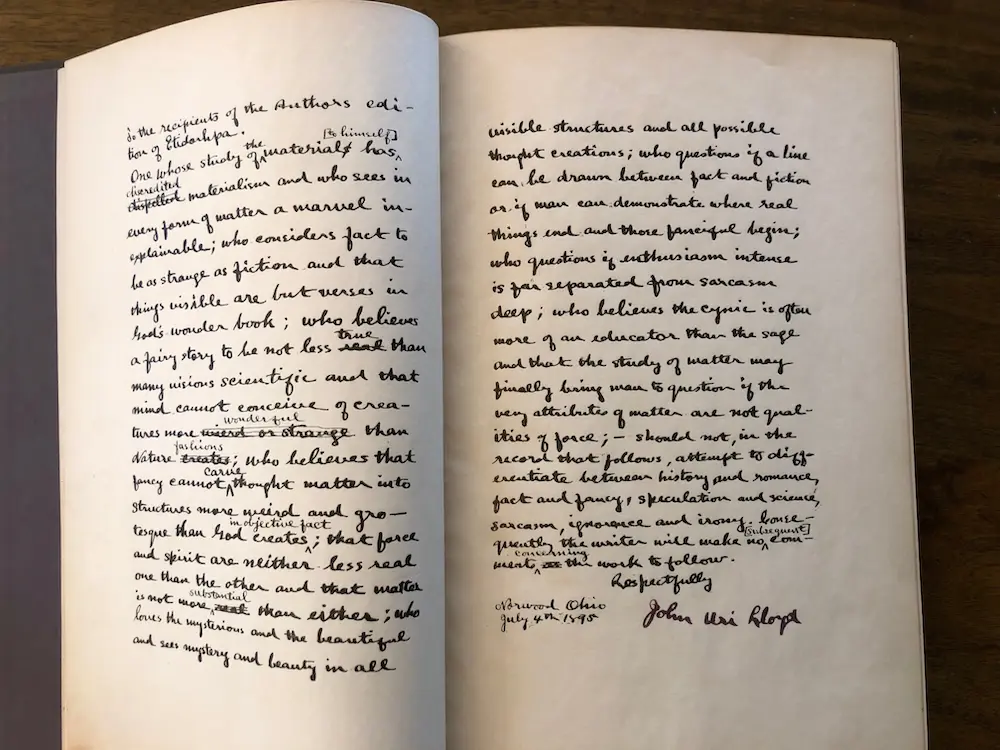 To the recipients of the Authors edi-
tion of Etidorhpa.
One whose study of the materials has [to himself]
discredited
dispelled materialism and who sees in
every form of matter a marvel in-
explainable; who considers fact to
be as strange as fiction and that
things visible are but verses in
God's wonder book; who believes
true
a fairy story to be not less real than
many visions scientific and that
mind cannot conceive of crea-
wonderful
tures more wierd or strange than
fashions
Nature creates; who believes that
carve
fancy cannot thought matter into
structures more weird and gro-
tesque than God creates in objective fact; that force
and spirit are neither less real
one than the other and that matter
substantial
is not more real than either; who
loves the mysterious and the beautiful
and sees mystery and beauty in all
visible structures and all possible
thought creations; who questions if a line
can be drawn between fact and fiction
or if man can demonstrate where real
things end and those fanciful begin;
who questions if enthusiasm intense
is far separated from sarcasm
deep; who believes the cynic is often
more of an educator than the sage
and that the study of matter may
finally bring man to question if the
very attributes of matter are not qual-
ities of force; – should not, in the
record that follows, attempt to diff-
erentiate between history and romance,
fact and fancy, speculation and science,
sarcasm, ignorance and irony. Conse-
quently the writer will make no [subsequent] com-
ments concerning the work to follow.
Respectfully
Norwood Ohio
July 4th 1895
John Uri Lloyd